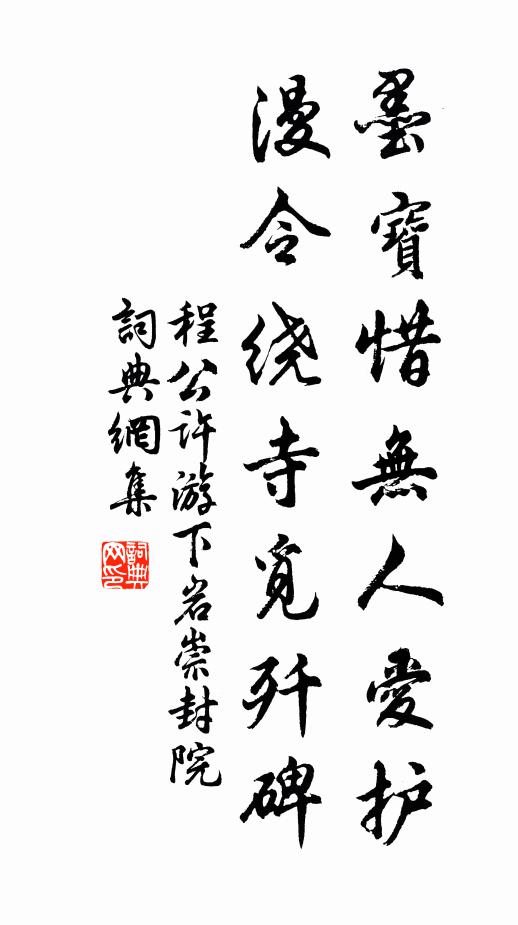 墨寶惜無人愛护
漫令绕寺覓歼碑
程公许游下岩崇封院
詞典網集
詞典网印